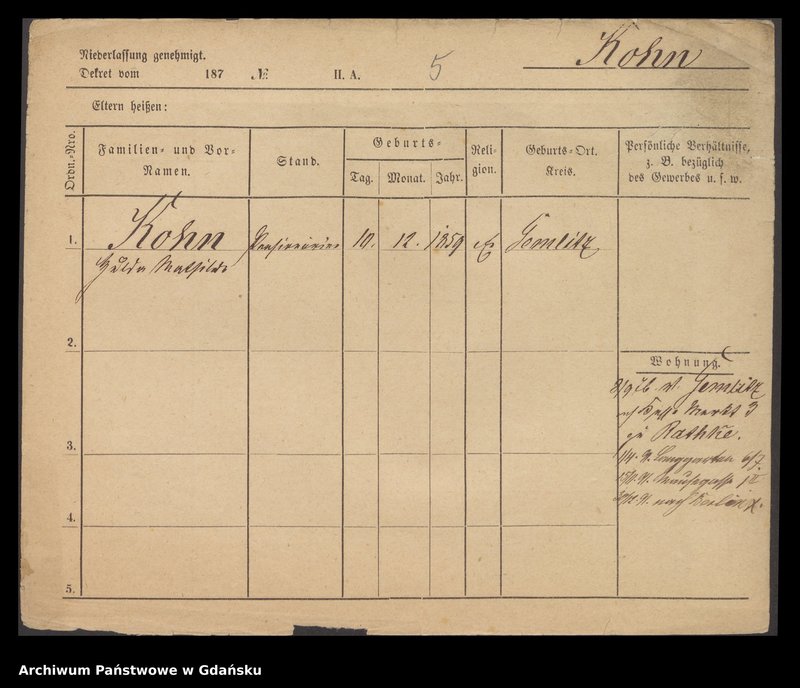 Niederlassung genehmigt.
Dekret vom 187 № II. A. 5
Kohn
Eltern heißen:
Ordn.-Nro.
Familien- und Vor-
Namen.
Stand.
Geburts-
Tag. Monat. Jahr.
Reli-
gion.
Geburts-Ort.
Kreis.
Persönliche Verhältnisse,
z. B. bezüglich
des Gewerbes u. s. w.
1. Kohn 10. 12. 1859 Gemlitz
Hulda Mathilde
2.
Wohnung.
v. Gemlitz
Markt 3
Rathke.
3.
Langgarten
nach Berlin
4.
5.
Archiwum Państwowe w Gdańsku